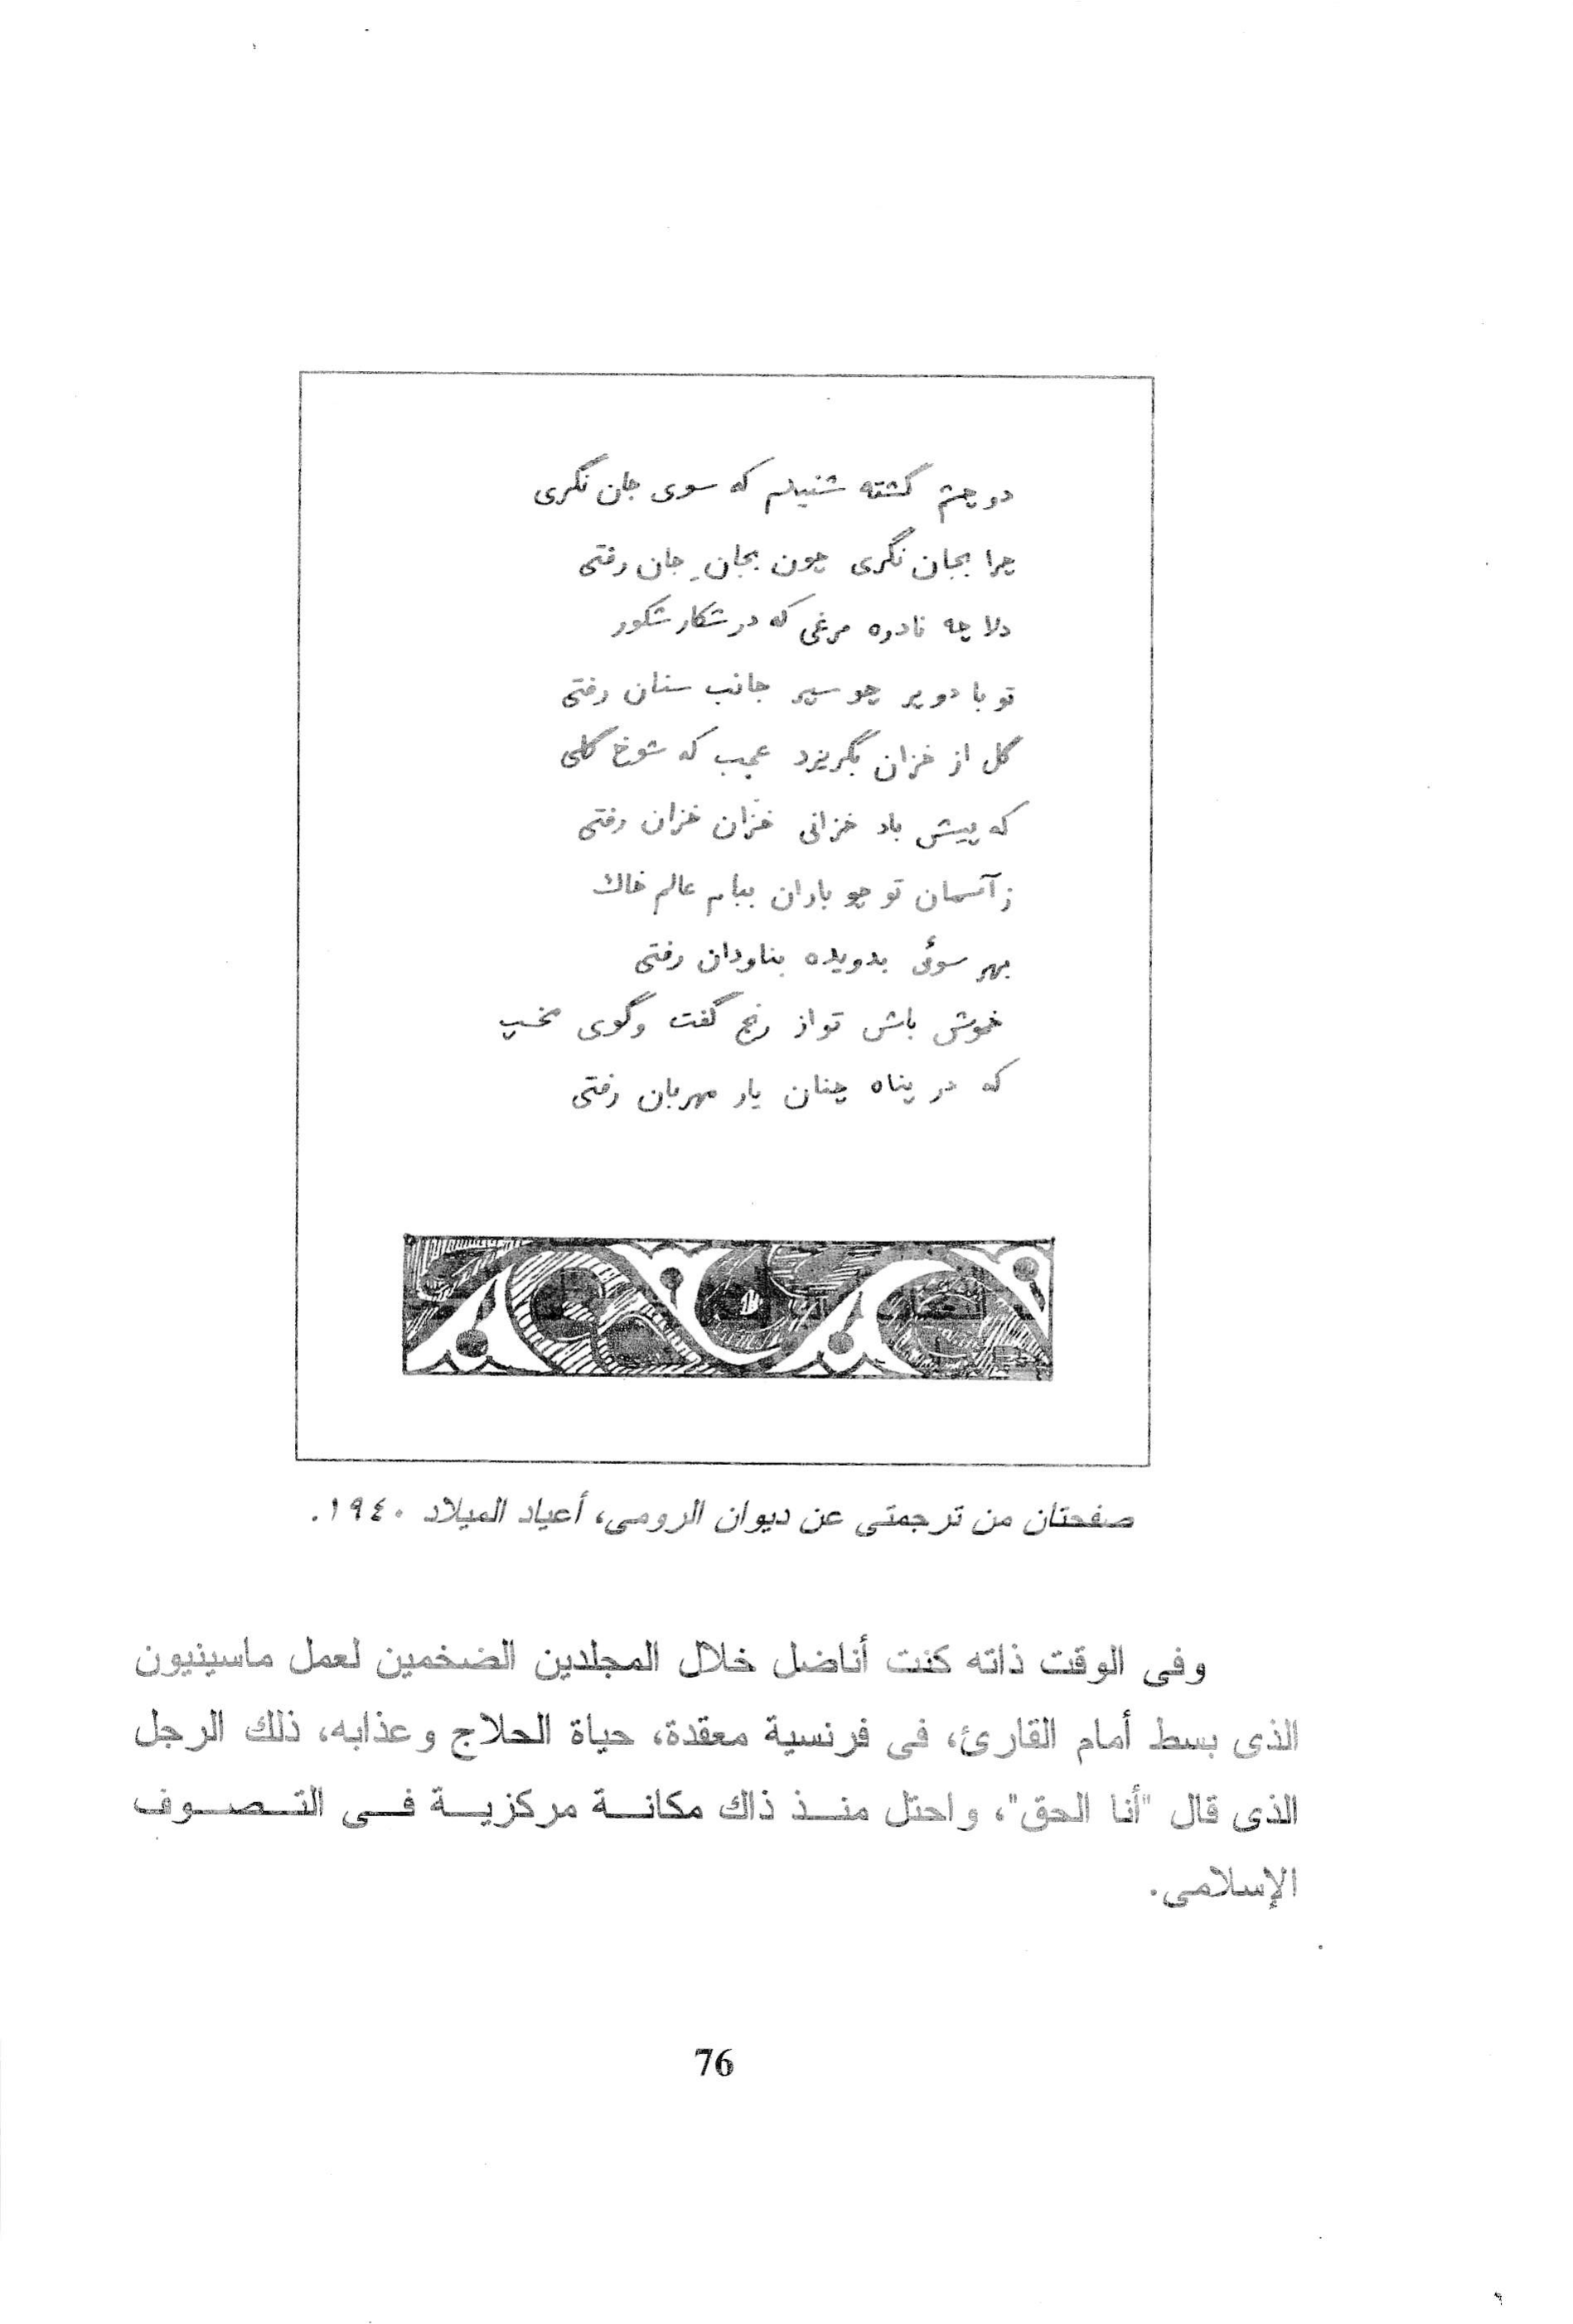 دو چشم کشته شنیدم که سوی جان نگری
چرا بجان نگری چون بجانِ جان رفتی
دلا چه نادره مرغی که در شکار شکور
تو با دو پر چو سپر جانب سنان رفتی
گل از خزان بگریزد عجب که شوخ گلی
که پیش باد خزانی خزان خزان رفتی
ز آسمان تو چو باران ببام عالم خاك
بهر سوئی بدویده بناودان رفتی
خموش باش تو از رنج گفت وگوی مخسپ
که در پناه چنان یار مهربان رفتی
صفحتان من ترجمتى عن ديوان الرومى، أعياد الميلاد ١٩٤٠.
وفى الوقت ذاته كنت أناضل خلال المجلدين الضخمين لعمل ماسينيون
الذى بسط أمام القارئ، فى فرنسية معقدة، حياة الحلاج وعذابه، ذلك الرجل
الذى قال "أنا الحق"، واحتل منذ ذاك مكانة مركزية فى التصوف
الإسلامى.
76